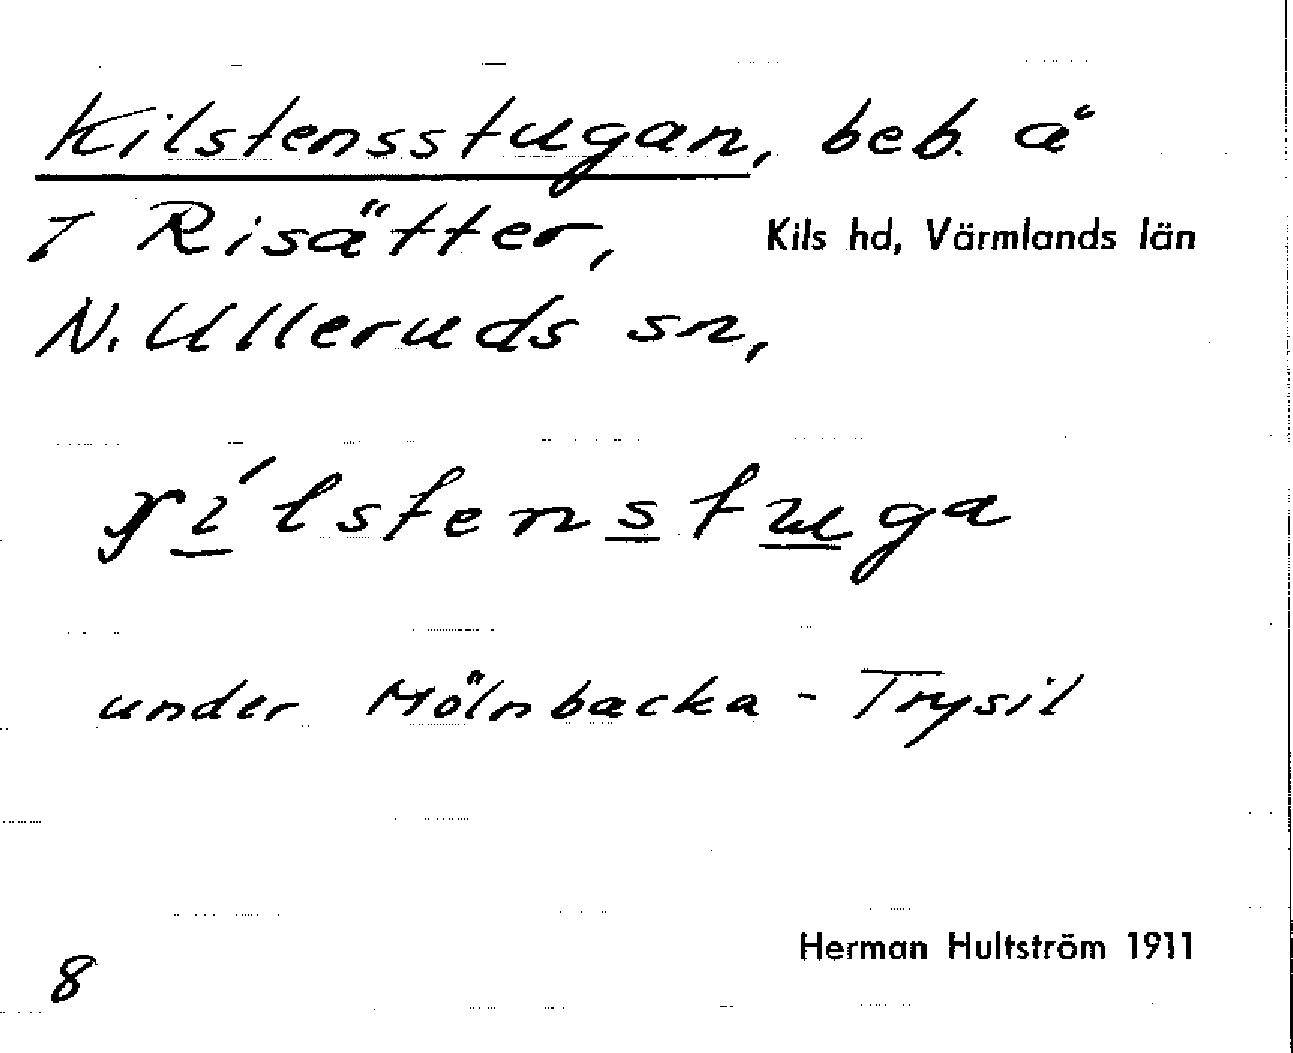 Kilstensstugan, beb. å
7 Risätter, Kils hd, Värmlands län
N. Ulleruds sn,
under Mölnbacka - Trysil
Herman Hultström 1911
8